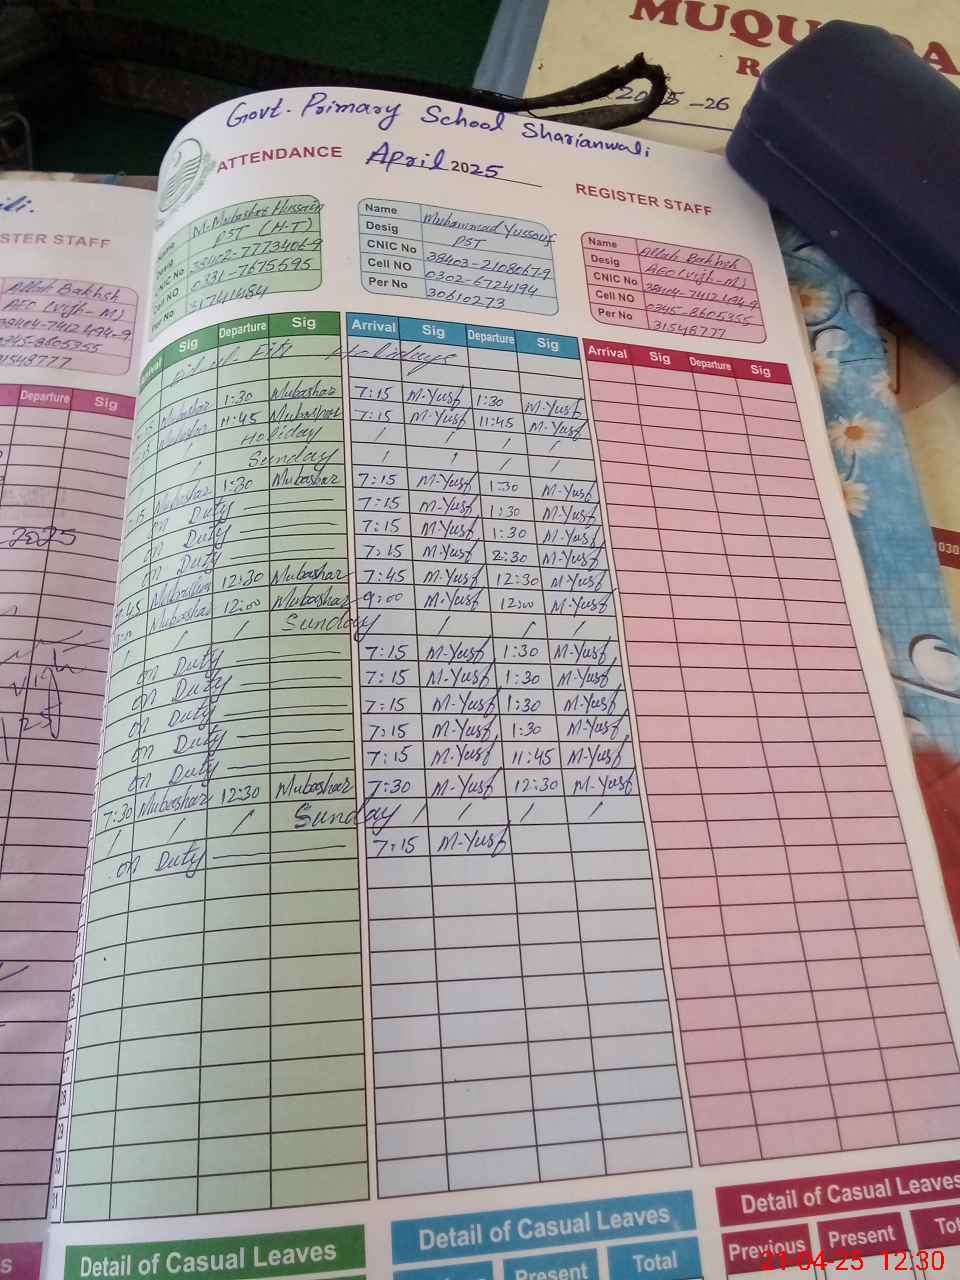 MUQU
R
2025-26
Govt. Primary School Sharianwali
ATTENDANCE April 2025 REGISTER STAFF
STER STAFF
M. Mubashar Hussain
PST (H-T)
Desig
CNIC No 38402-7773406-9
Cell NO 0331-7675695
Per No 31741484
Name Muhammad Yussouf
Desig PST
CNIC No 38403-2108067-9
Cell NO 0302-6724194
Per No 30610273
Name Allah Bakhsh
Desig AEO (Vijh-M)
CNIC No 38404-7412494-9
Cell NO 0345-8605355
Per No 31548777
Allah Bakhsh
AEO (Vijh-M)
38404-7412494-9
0345-8605355
31548777
Departure Sig
Sig Departure Sig
Arrival Sig Departure Sig
Arrival Sig Departure Sig
Holidays
Mubashar 1:30 Mubashar 7:15 M-Yusf 1:30 M-Yusf
Mubashar 11:45 Mubashar 7:15 M-Yusf 11:45 M-Yusf
/ Holiday / / / /
/ Sunday / / / /
Mubashar 1:30 Mubashar 7:15 M-Yusf 1:30 M-Yusf
on Duty 7:15 M-Yusf 1:30 M-Yusf
on Duty 7:15 M-Yusf 1:30 M-Yusf
on Duty 7:15 M-Yusf 2:30 M-Yusf
7:45 Mubashar 12:30 Mubashar 7:45 M-Yusf 12:30 M-Yusf
Mubashar 12:00 Mubashar 9:00 M-Yusf 12:00 M-Yusf
/ / / Sunday / / /
on Duty 7:15 M-Yusf 1:30 M-Yusf
on Duty 7:15 M-Yusf 1:30 M-Yusf
on Duty 7:15 M-Yusf 1:30 M-Yusf
on Duty 7:15 M-Yusf 1:30 M-Yusf
on Duty 7:15 M-Yusf 11:45 M-Yusf
7:30 Mubashar 12:30 Mubashar 7:30 M-Yusf 12:30 M-Yusf
/ / / Sunday / / / /
on Duty 7:15 M-Yusf
2025
Detail of Casual Leaves
Detail of Casual Leaves
Present Total
Detail of Casual Leaves
Previous Present Tot
21-04-25 12:30